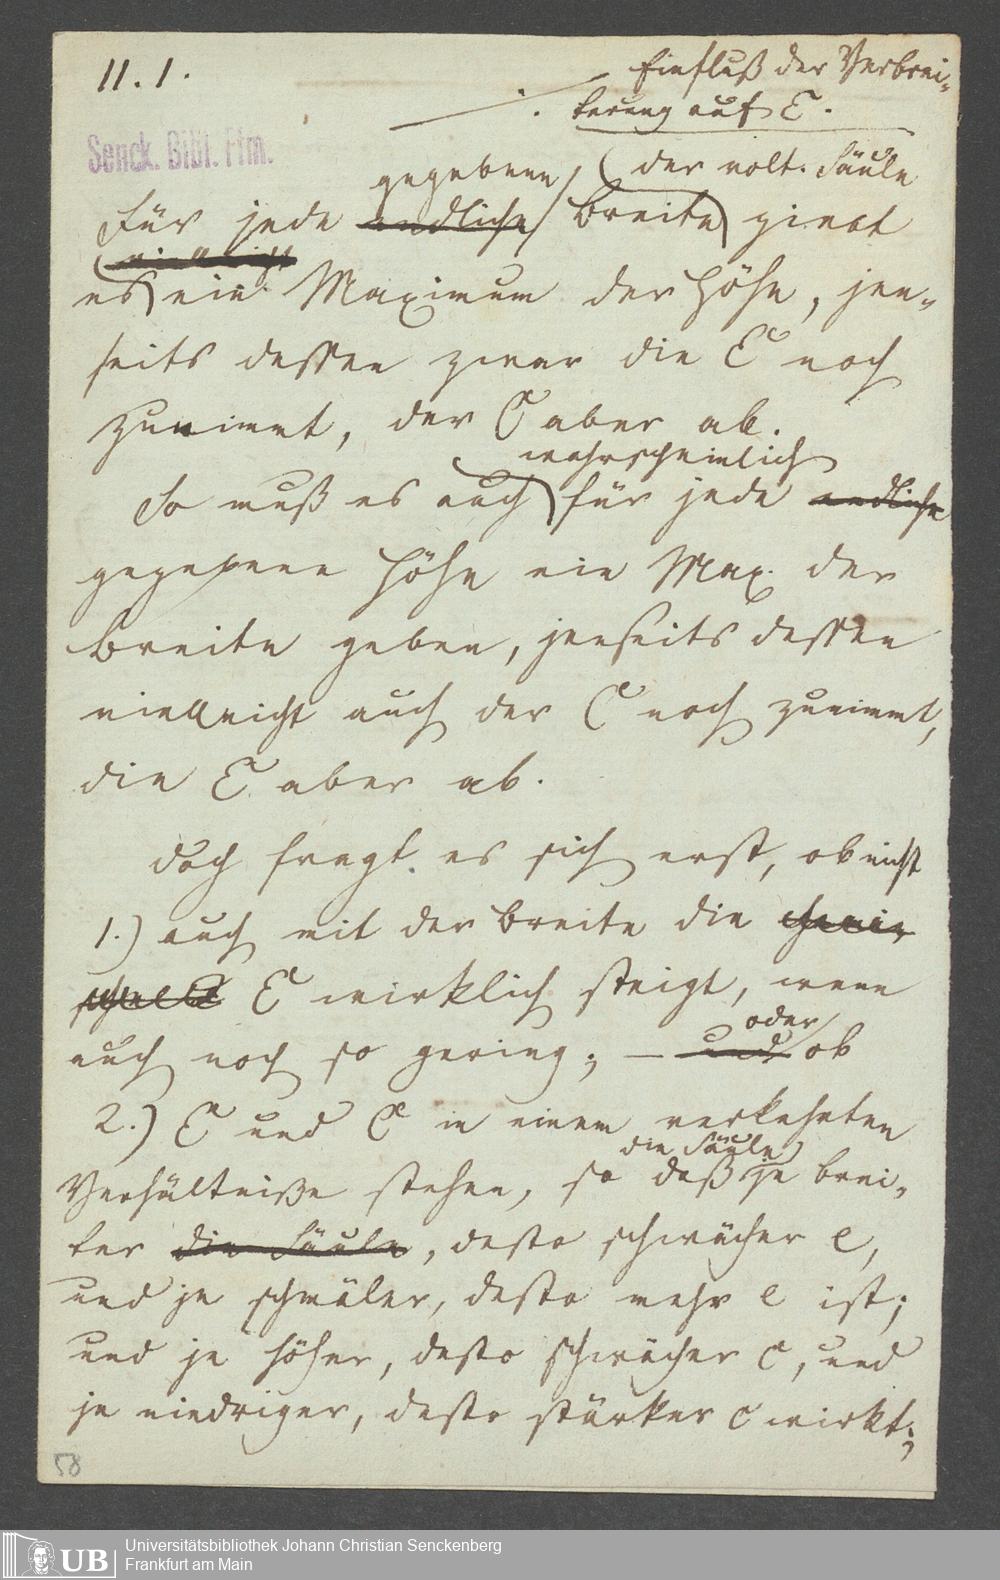 II. 1.
Einfluß der Verbrei-
terung auf E.
Senck. Bibl. Ffm.
gegebene der volt. Säule
Für jede endliche Breite giebt
vielleicht
es ein Maximum der Höhe, jen-
seits dessen zwar die E noch
zunimmt, der C aber ab.
wahrscheinlich
So muß es auch für jede endliche
gegebene Höhe ein Max. der
Breite geben, jenseits dessen
vielleicht auch der C noch zunimmt,
die E aber ab.
Doch fragt es sich erst, ob nicht
1.) auch mit der Breite die
E wirklich steigt, wenn
oder
auch noch so gering; – und ob
2.) E und C in einem verkehrten
die Säule
Verhältniße stehen, so daß je brei-
ter die Säule, desto schwächer e,
und je schmäler, desto mehr e ist;
und je höher, desto schwächer c, und
je niedriger, desto stärker c wirkt;
58
UB
Universitätsbibliothek Johann Christian Senckenberg
Frankfurt am Main